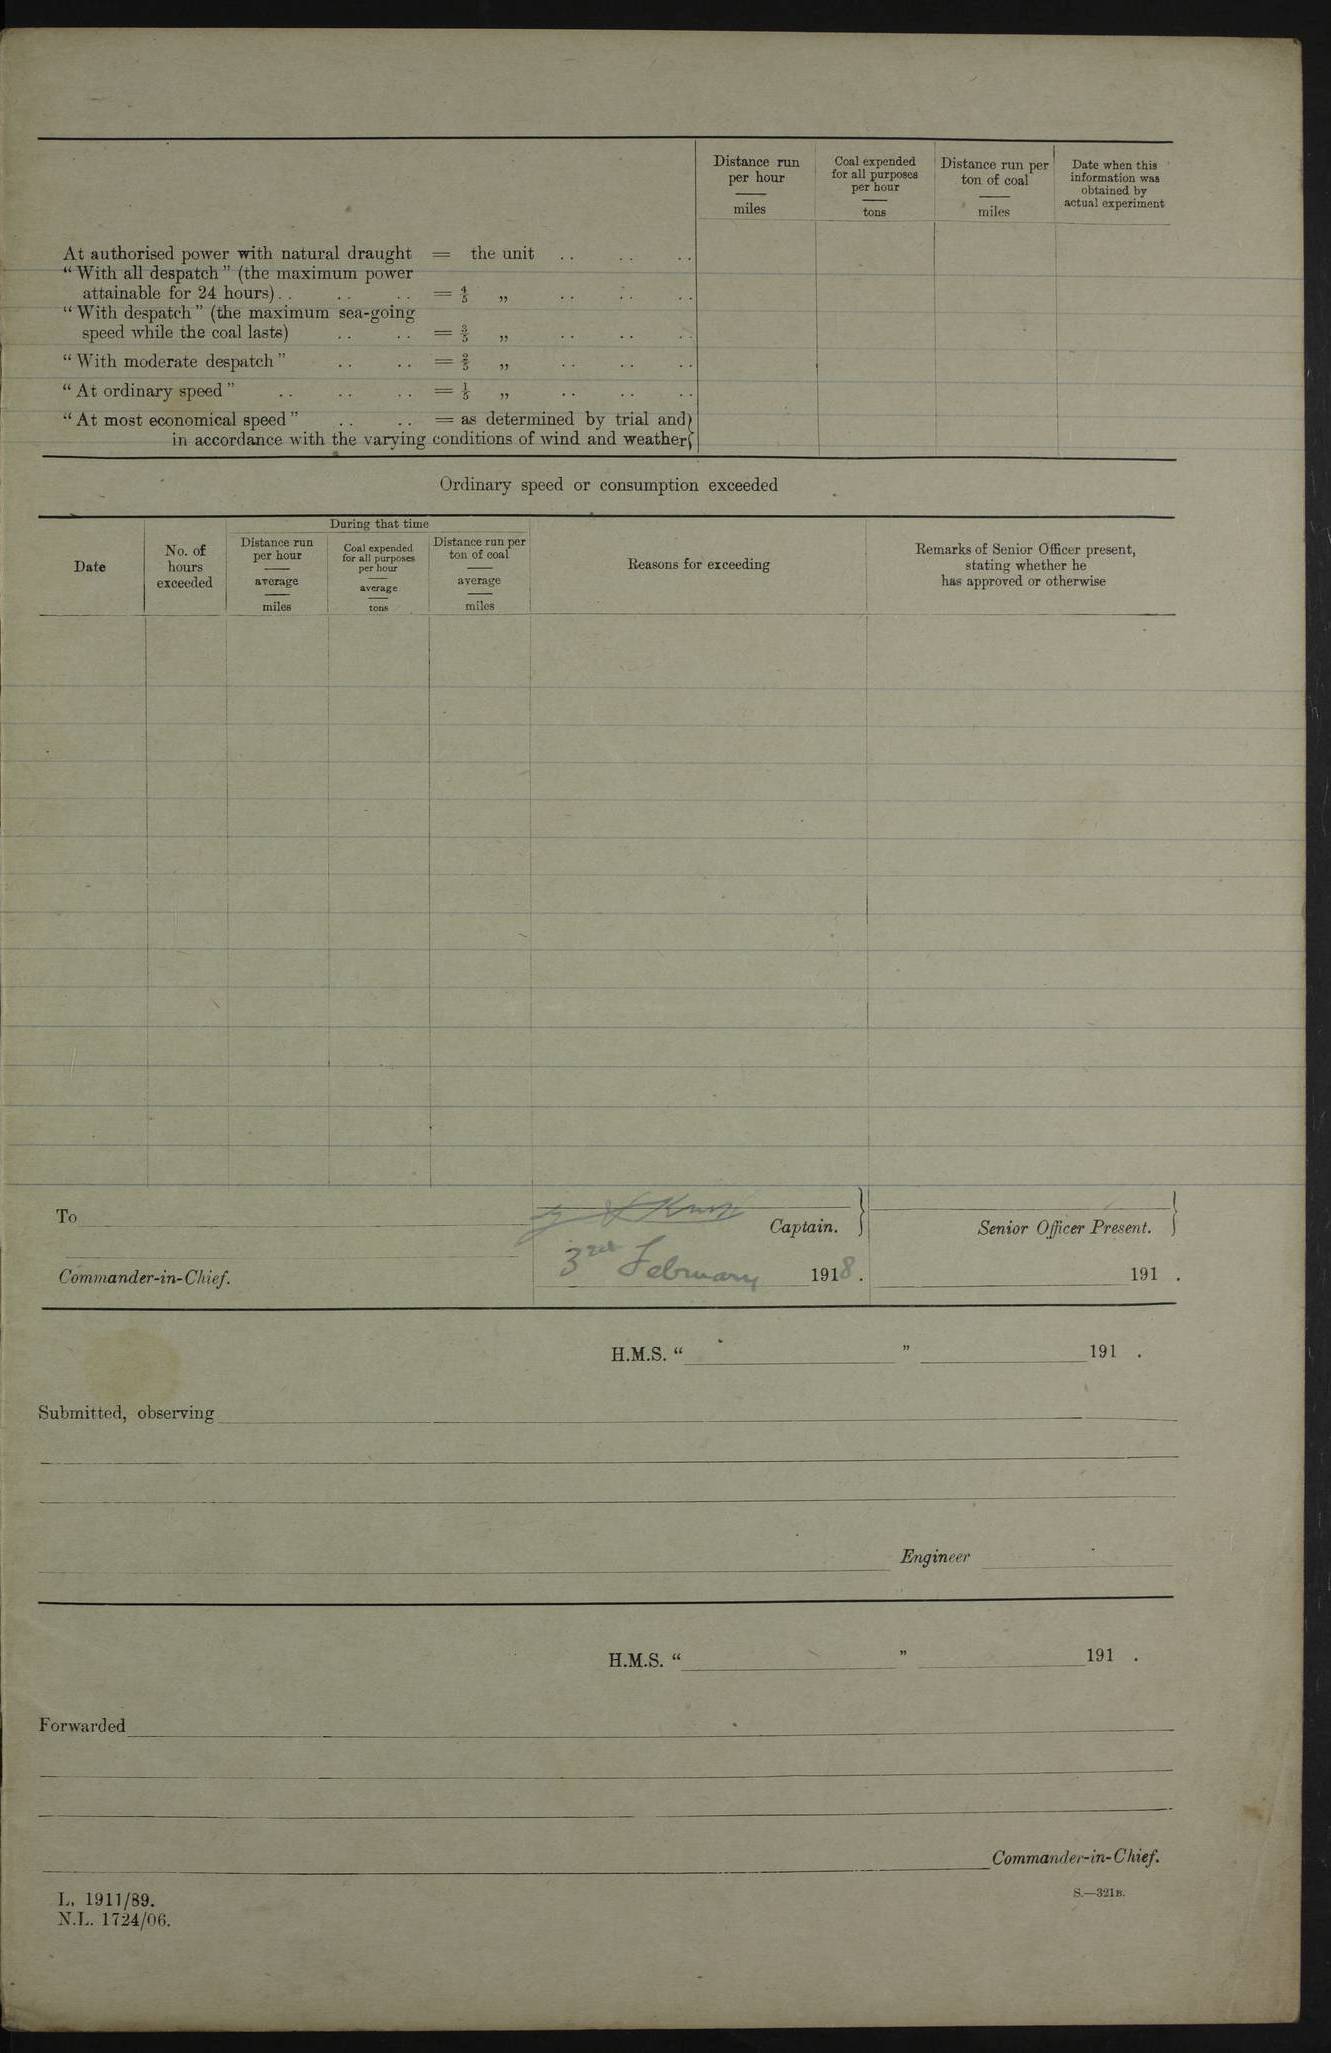 Distance run per hour miles
Coal expended for all purposes per hour tons
Distance run per ton of coal miles
Date when this information was obtained by actual experiment
At authorised power with natural draught = the unit .. .. ..
“With all despatch” (the maximum power
attainable for 24 hours) .. .. .. = 4/5 „ .. .. ..
“With despatch” (the maximum sea-going
speed while the coal lasts) .. .. = 3/5 „ .. .. ..
“With moderate despatch” .. .. = 2/5 „ .. .. ..
“At ordinary speed” .. .. .. = 1/5 „ .. .. ..
“At most economical speed” .. .. = as determined by trial and
in accordance with the varying conditions of wind and weather
Ordinary speed or consumption exceeded
Date
No. of hours exceeded
During that time
Distance run per hour average miles
Coal expended for all purposes per hour average tons
Distance run per ton of coal average miles
Reasons for exceeding
Remarks of Senior Officer present,
stating whether he
has approved or otherwise
To
Captain.
Senior Officer Present.
Commander-in-Chief.
3rd February 1918.
191 .
H.M.S. “ ” 191 .
Submitted, observing
Engineer
H.M.S. “ ” 191 .
Forwarded
Commander-in-Chief.
L. 1911/89.
N.L. 1724/06.
S.—321B.